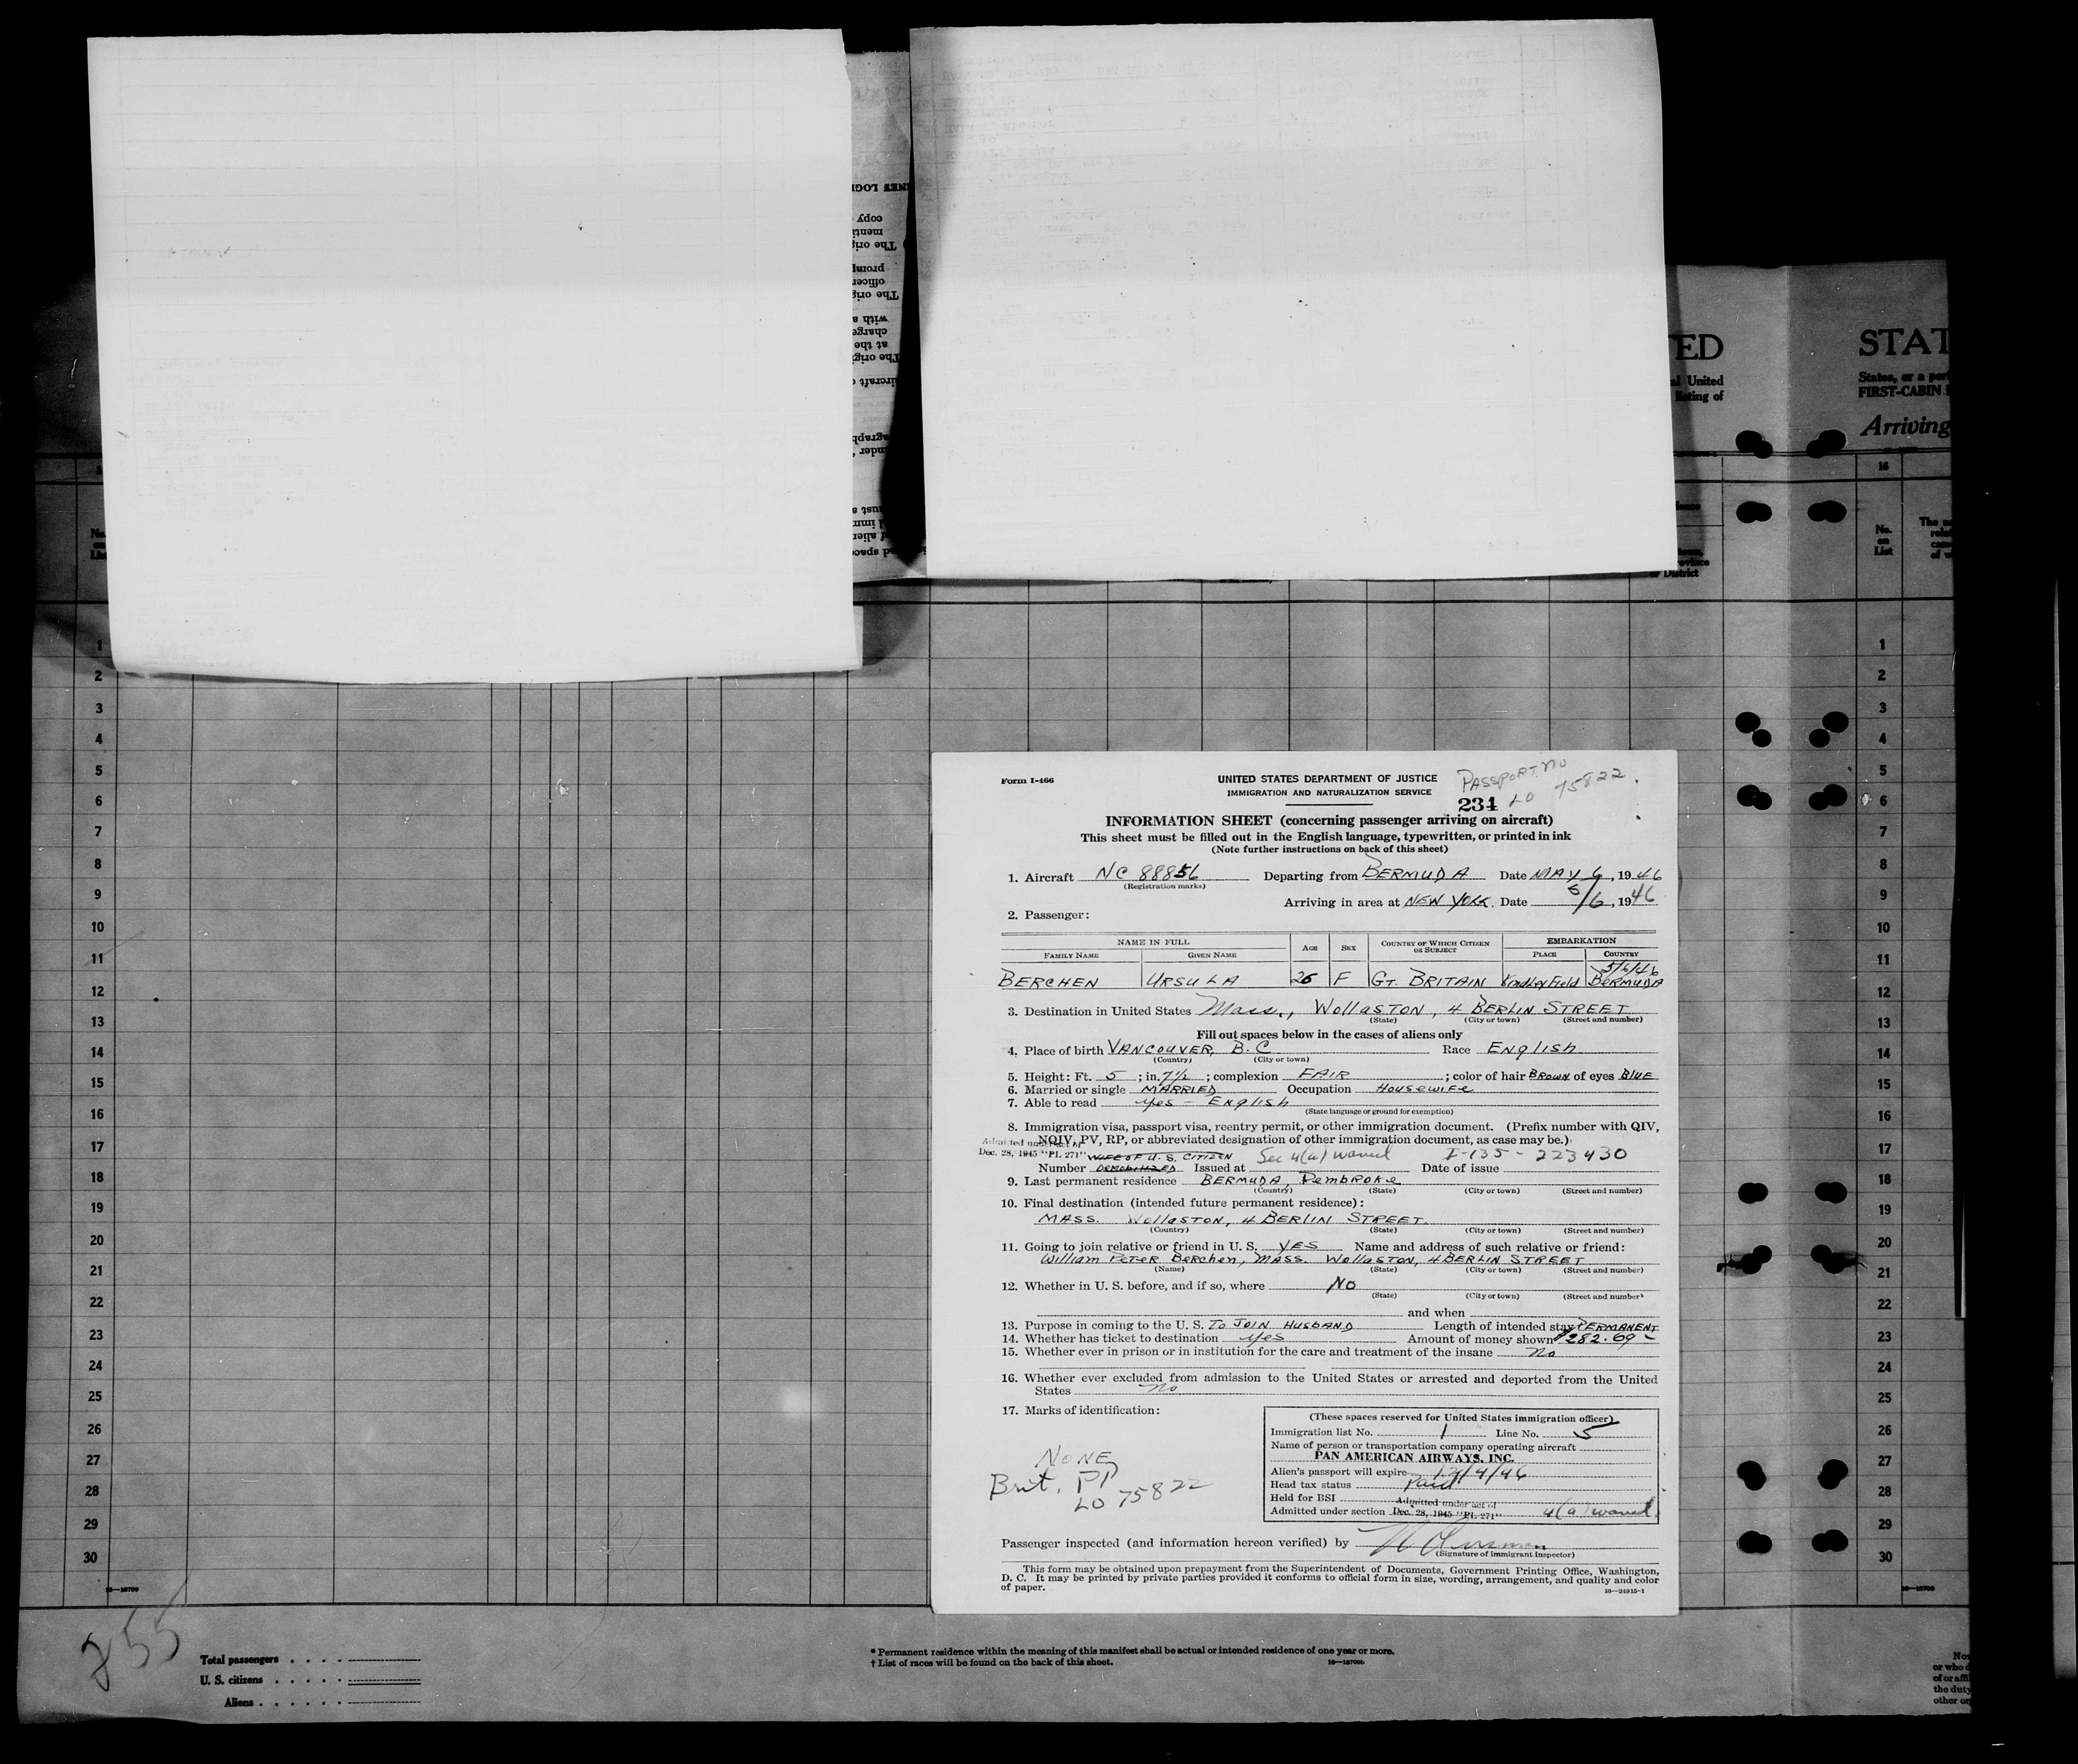 ED
al United
listing of
STAT
States, or a port
FIRST-CABIN
Arriving
16
No.
on
List
or District
No.
on
List
1
2
3
4
5
6
7
8
9
10
11
12
13
14
15
16
17
18
19
20
21
22
23
24
25
26
27
28
29
30
16—18709
255
Total passengers
U. S. citizens
Aliens
* Permanent residence within the meaning of this manifest shall be actual or intended residence of one year or more.
† List of races will be found on the back of this sheet.
Form I-466
UNITED STATES DEPARTMENT OF JUSTICE
IMMIGRATION AND NATURALIZATION SERVICE
PASSPORT NO
LO 75822.
234
INFORMATION SHEET (concerning passenger arriving on aircraft)
This sheet must be filled out in the English language, typewritten, or printed in ink
(Note further instructions on back of this sheet)
1. Aircraft NC 88856 Departing from BERMUDA Date MAY 6, 1946
(Registration marks)
Arriving in area at NEW YORK. Date 5/6, 1946
2. Passenger:
NAME IN FULL AGE SEX COUNTRY OF WHICH CITIZEN OR SUBJECT EMBARKATION
FAMILY NAME GIVEN NAME PLACE COUNTRY
5/6/46
BERCHEN URSULA 26 F GT. BRITAIN Kindley Field BERMUDA
3. Destination in United States Mass., WOLLASTON, 4 BERLIN STREET
(State) (City or town) (Street and number)
Fill out spaces below in the cases of aliens only
4. Place of birth VANCOUVER, B.C. Race ENGLISH
(Country) (City or town)
5. Height: Ft. 5; in. 7½; complexion FAIR; color of hair BROWN of eyes BLUE
6. Married or single MARRIED Occupation HOUSEWIFE
7. Able to read yes - ENGLISH
(State language or ground for exemption)
8. Immigration visa, passport visa, reentry permit, or other immigration document. (Prefix number with QIV,
NQIV, PV, RP, or abbreviated designation of other immigration document, as case may be.)
Admitted under act of
Dec. 28, 1945 "PL 271" WIFE OF U.S. CITIZEN Sec 4(a) waived I-135-223430
Number DEMOBILIZED Issued at Date of issue
9. Last permanent residence BERMUDA, PEMBROKE
(Country) (State) (City or town) (Street and number)
10. Final destination (intended future permanent residence):
MASS. WOLLASTON, 4 BERLIN STREET.
(Country) (State) (City or town) (Street and number)
11. Going to join relative or friend in U. S. YES Name and address of such relative or friend:
William PETER BERCHEN, MASS. WOLLASTON, 4 BERLIN STREET
(Name) (State) (City or town) (Street and number)
12. Whether in U. S. before, and if so, where NO
(State) (City or town) (Street and number)
and when
13. Purpose in coming to the U. S. TO JOIN HUSBAND Length of intended stay PERMANENT
14. Whether has ticket to destination yes Amount of money shown $282.69
15. Whether ever in prison or in institution for the care and treatment of the insane no
16. Whether ever excluded from admission to the United States or arrested and deported from the United
States no
17. Marks of identification:
NONE
Brit. PP
LO 75822
(These spaces reserved for United States immigration officer)
Immigration list No. 1 Line No. 5
Name of person or transportation company operating aircraft
PAN AMERICAN AIRWAYS, INC.
Alien's passport will expire 12/4/46
Head tax status Paid
Held for BSI
Admitted under act of
Admitted under section Dec. 28, 1945 "PL 271" 4(a) waived
Passenger inspected (and information hereon verified) by
(Signature of immigrant inspector)
This form may be obtained upon prepayment from the Superintendent of Documents, Government Printing Office, Washington,
D. C. It may be printed by private parties provided it conforms to official form in size, wording, arrangement, and quality and color
of paper.
16—24915-1